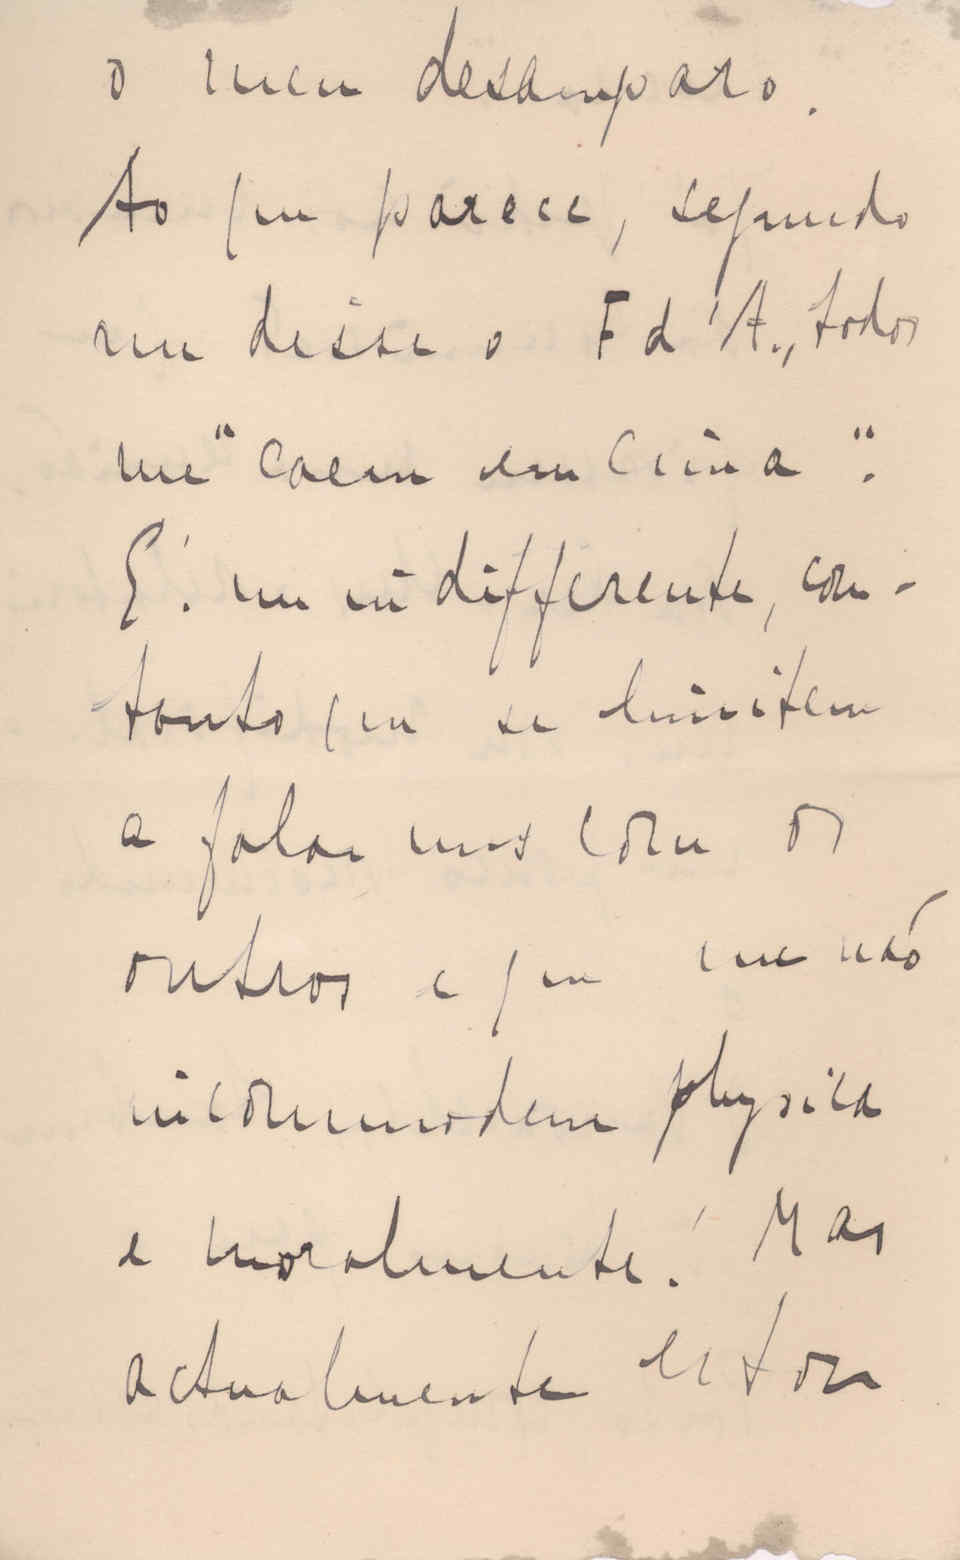 o meu desamparo.
Ao que parece, segundo
me disse o F d'A., todos
me "caem em cima".
E' me indifferente, con-
tanto que se limitem
a falar uns com os
outros e que me não
incommodem physica
e moralmente! Mas
actualmente estou